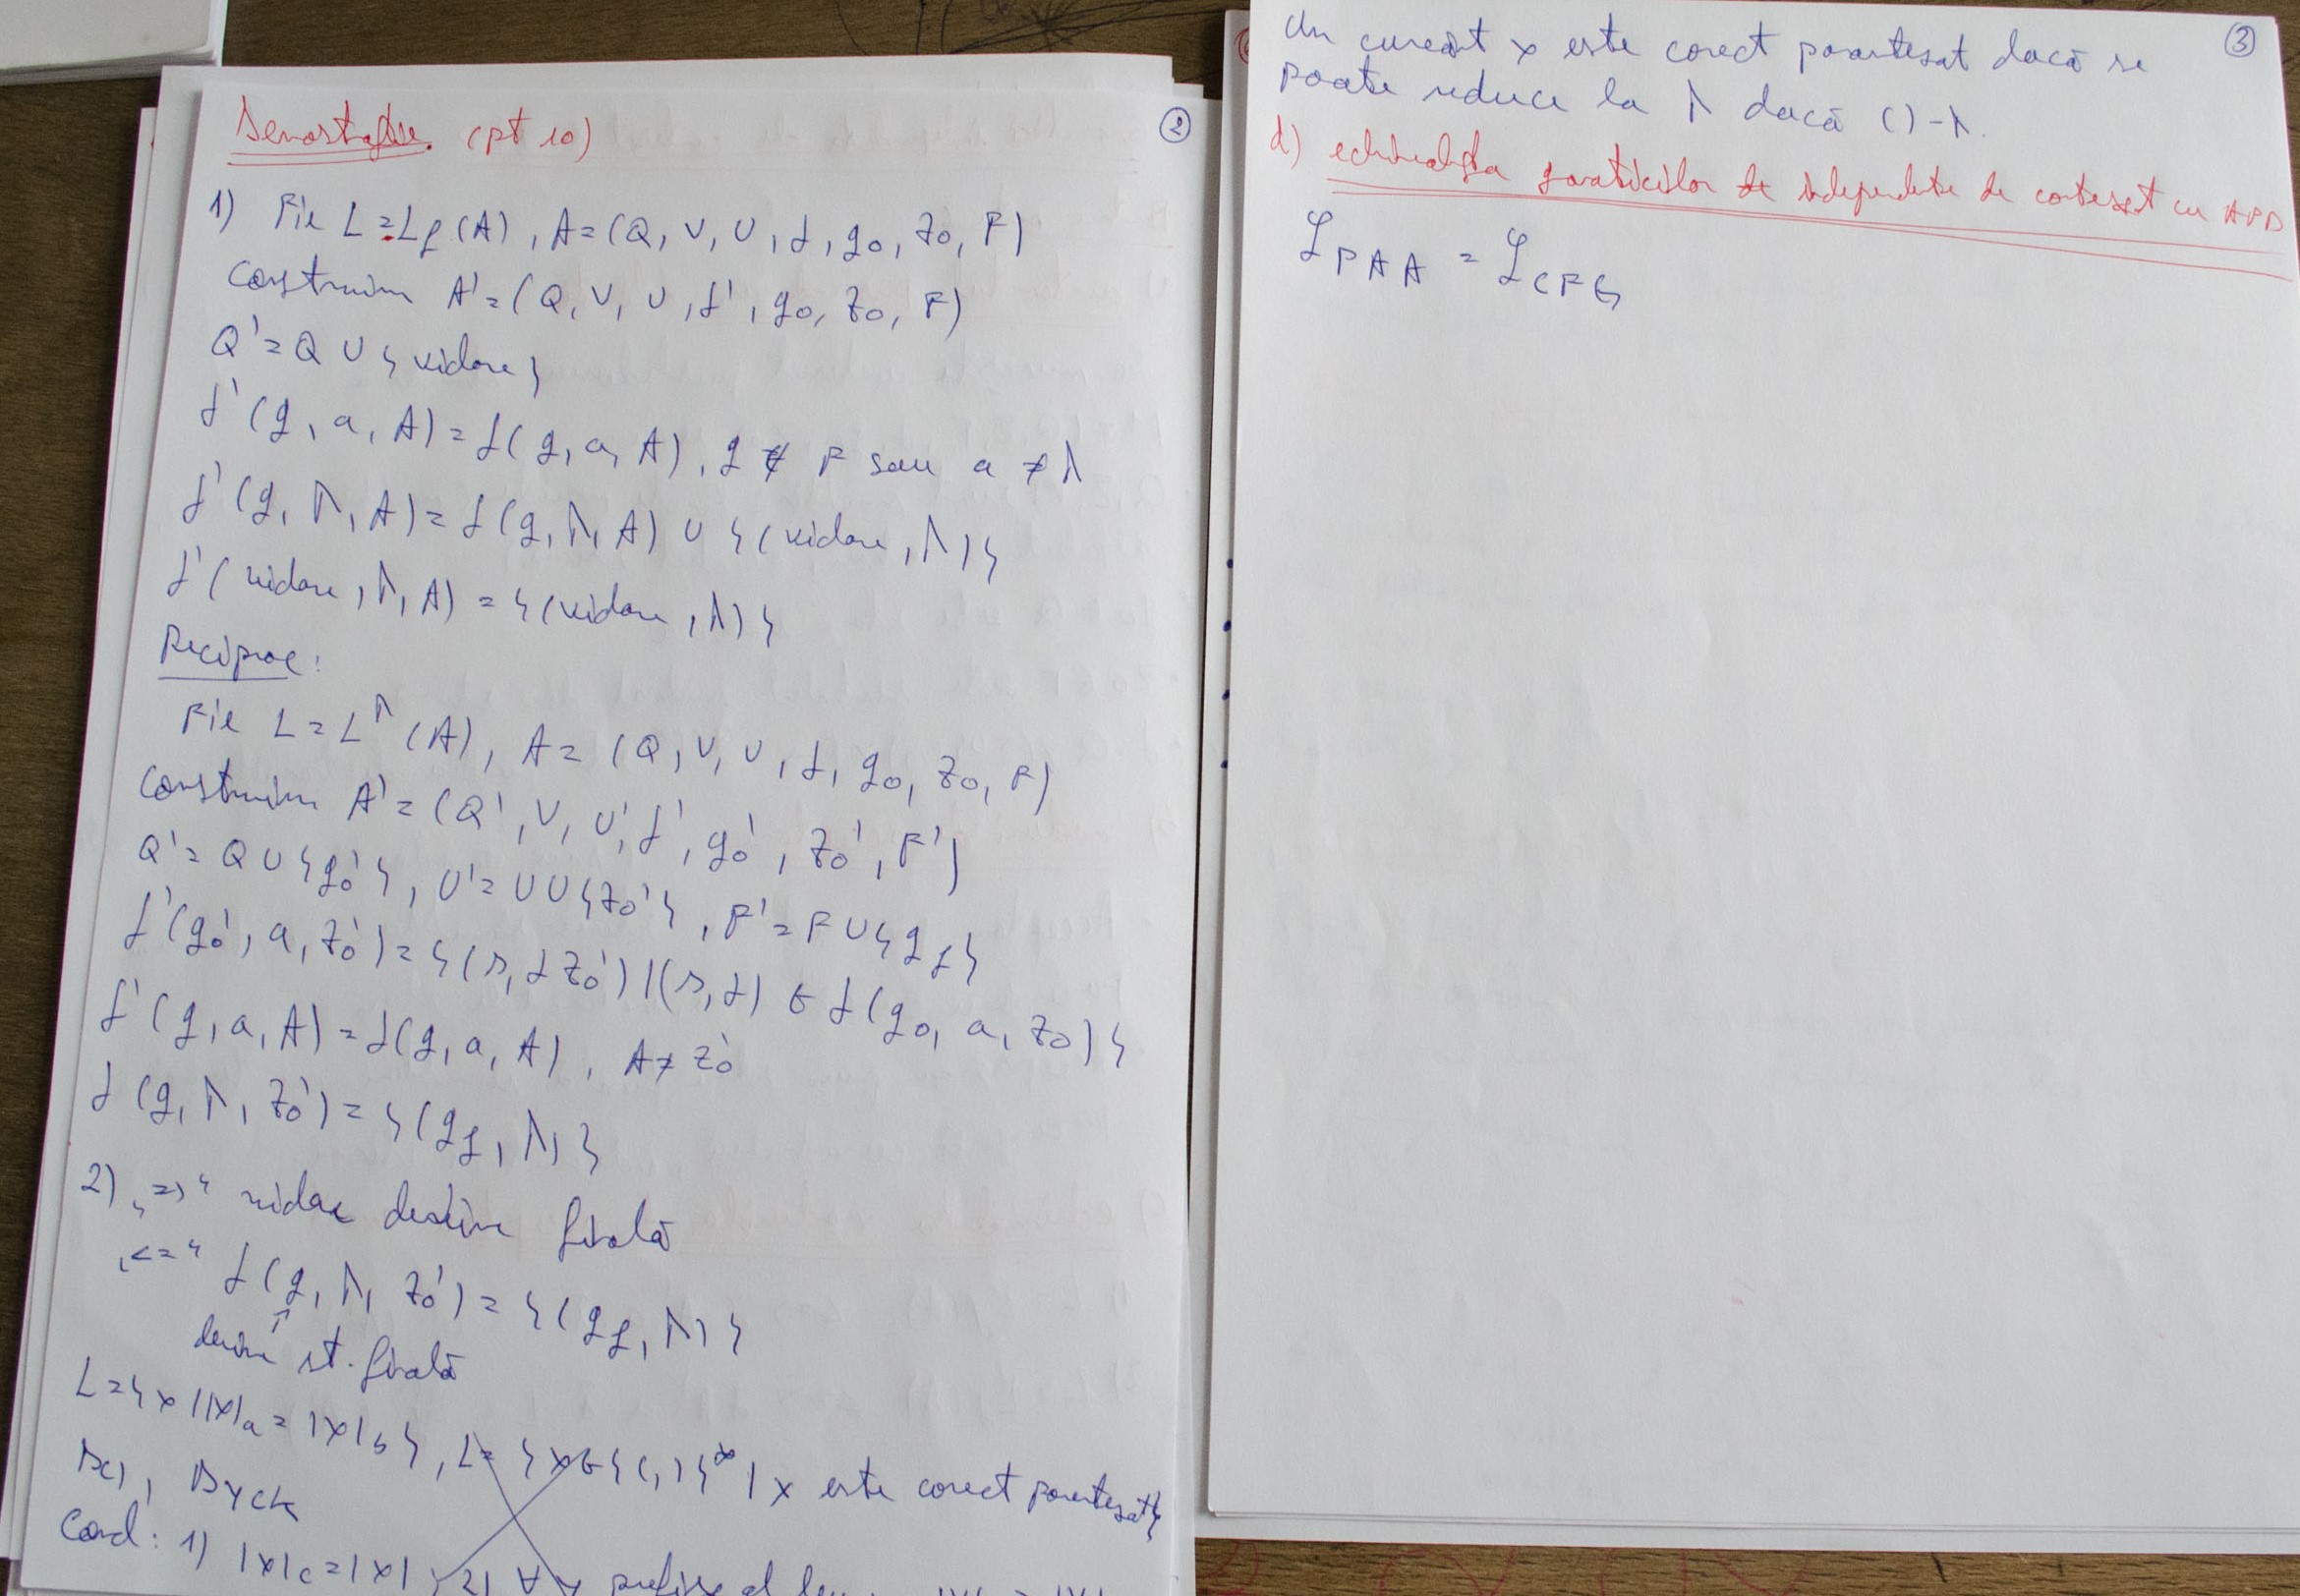 Demonstrație (pt 10)
②
1) Fie L=Lf(A), A=(Q, V, U, f, q0, z0, F)
Construim A'=(Q, V, U, f', q0, z0, F)
Q'=Q ∪ {vidare}
f'(q, a, A)=f(q, a, A), q ∉ F sau a ≠ λ
f'(q, λ, A)=f(q, λ, A) ∪ {(vidare, λ)}
f'(vidare, λ, A) = {(vidare, λ)}
Reciproc:
Fie L=L^λ(A), A=(Q, V, U, f, q0, z0, F)
Construim A'=(Q', V, U', f', q0', z0', F')
Q'=Q ∪ {q0'}, U'=U∪{z0'}, F'=F∪{qf}
f'(q0', a, z0')={(s, αz0')|(s, α) ∈ f(q0, a, z0)}
f'(q, a, A)=f(q, a, A), A≠z0'
f(q, λ, z0')={(qf, λ)}
2) „=>" vidare devine finală
„<=" f(q, λ, z0')={(qf, λ)}
devine st. finală
L={x||x|a=|x|b}, L={x∈{(,)}* | x este corect parantezat}
D(), Dyck
Cond: 1) |x|(=|x|) 2) ∀ y prefix al lui
③
Un cuvânt x este corect parantezat dacă se
poate reduce la λ dacă ()-λ.
d) echivalența gramaticilor de independente de context cu APD
ℒPAA = ℒCFG